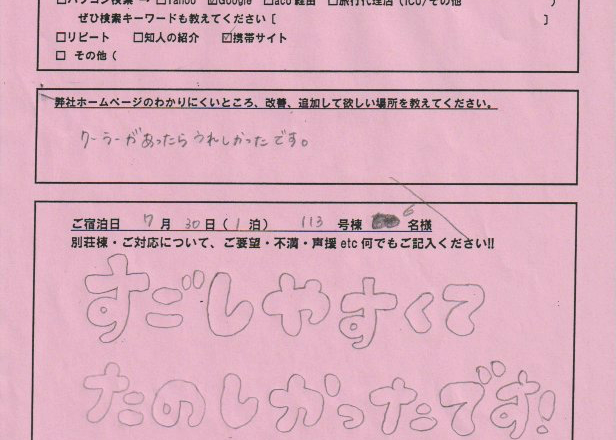 □パソコン検索 → □Yahoo ☑Google □aol 経由 □旅行代理店（ICU/その他 ）
ぜひ検索キーワードも教えてください［ ］
□リピート □知人の紹介 ☑携帯サイト
□ その他（
弊社ホームページのわかりにくいところ、改善、追加して欲しい場所を教えてください。
クーラーがあったらうれしかったです。
ご宿泊日 7月 30日（1泊） 113 号棟 6名様
別荘棟・ご対応について、ご要望・不満・声援 etc 何でもご記入ください!!
すごしやすくて
たのしかったです!